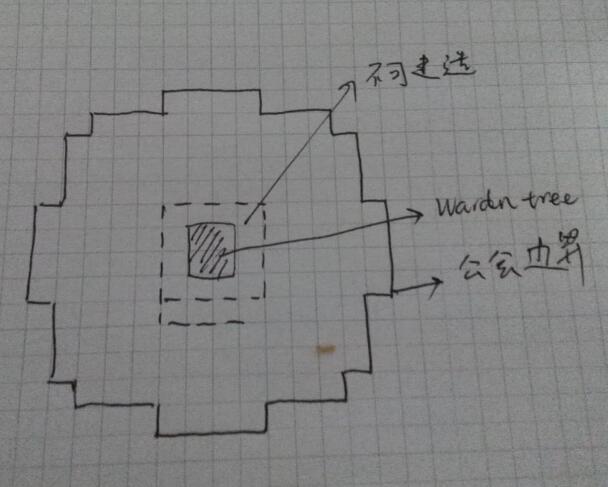 不可建造
Wardn tree
公会边界